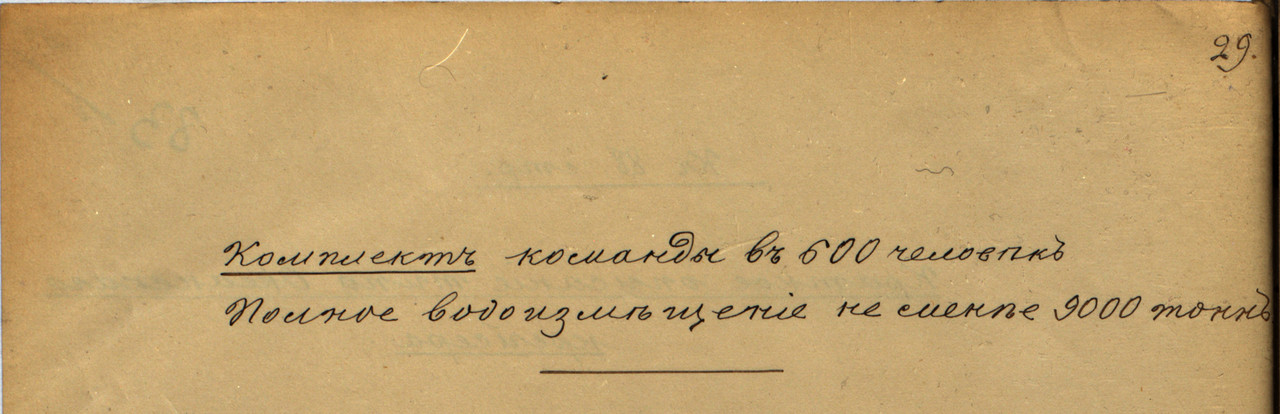 29.
Комплектъ команды въ 600 человѣкъ
Полное водоизмѣщеніе не менѣе 9000 тоннъ